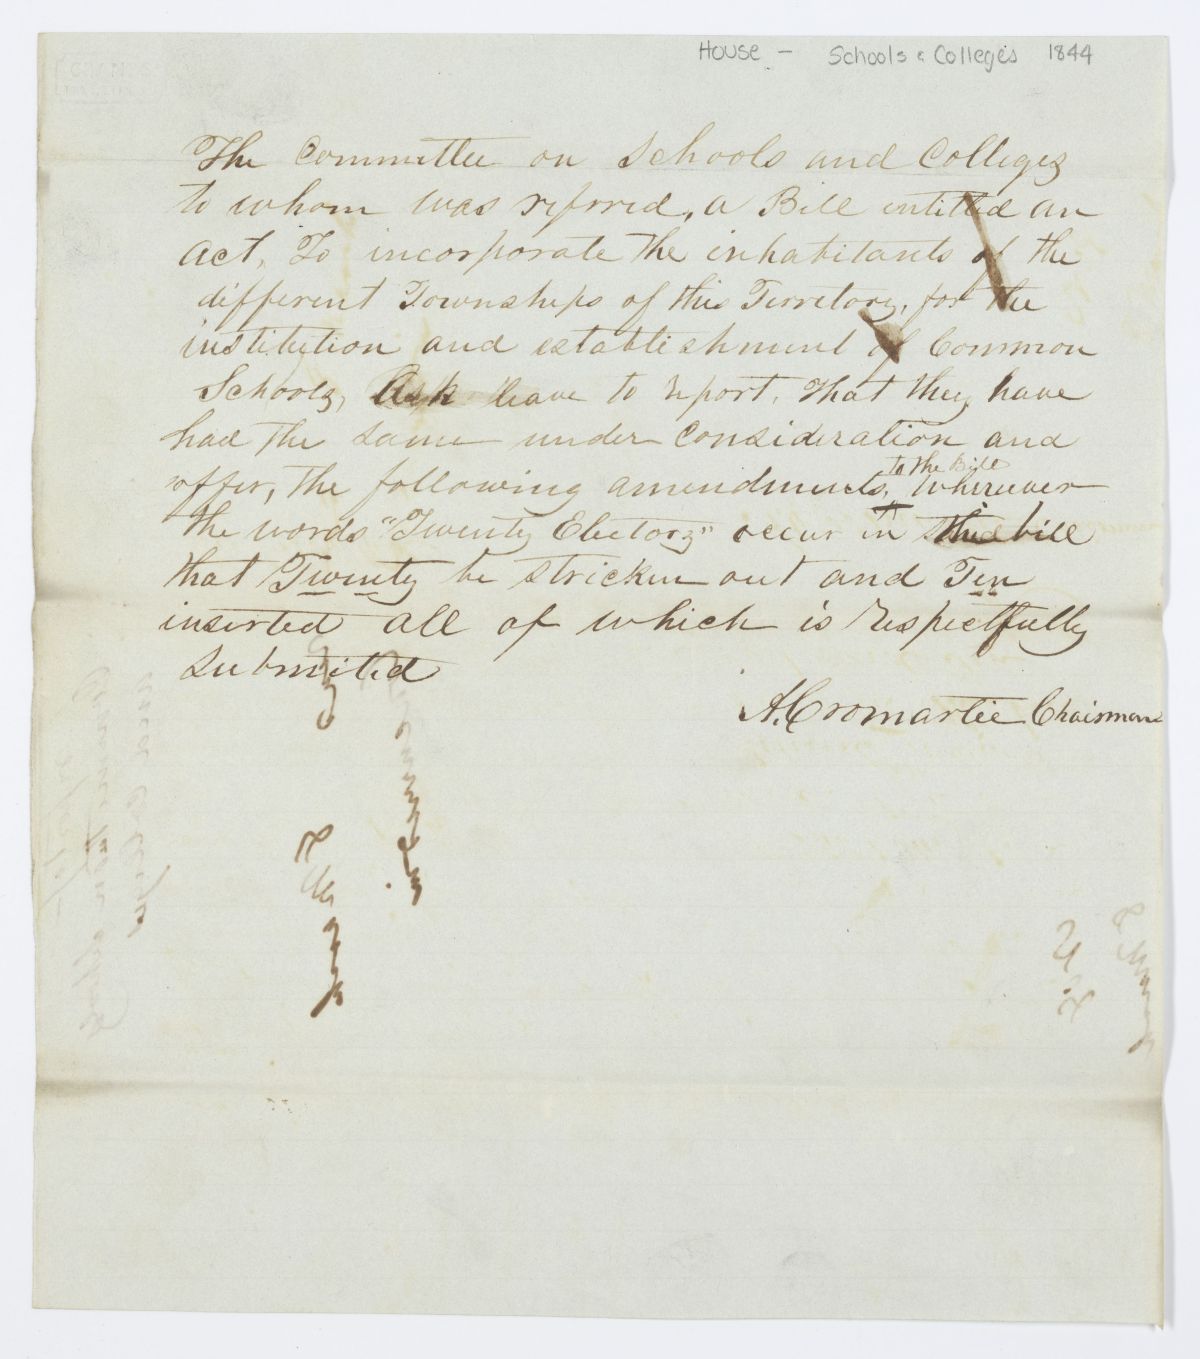 House - Schools & Colleges 1844
The Committee on Schools and Colleges
to whom was referred, a Bill entitled an
act, To incorporate the inhabitants of the
different Townships of this Territory, for the
institution and establishment of Common
Schools, Ask leave to report, that they have
had the same under consideration and
offer, the following amendments, to the Bill Whereever
the words "Twenty Electors" occur in said bill
that Twenty be stricken out and Ten
inserted all of which is respectfully
submitted
A. Cromartie Chairman